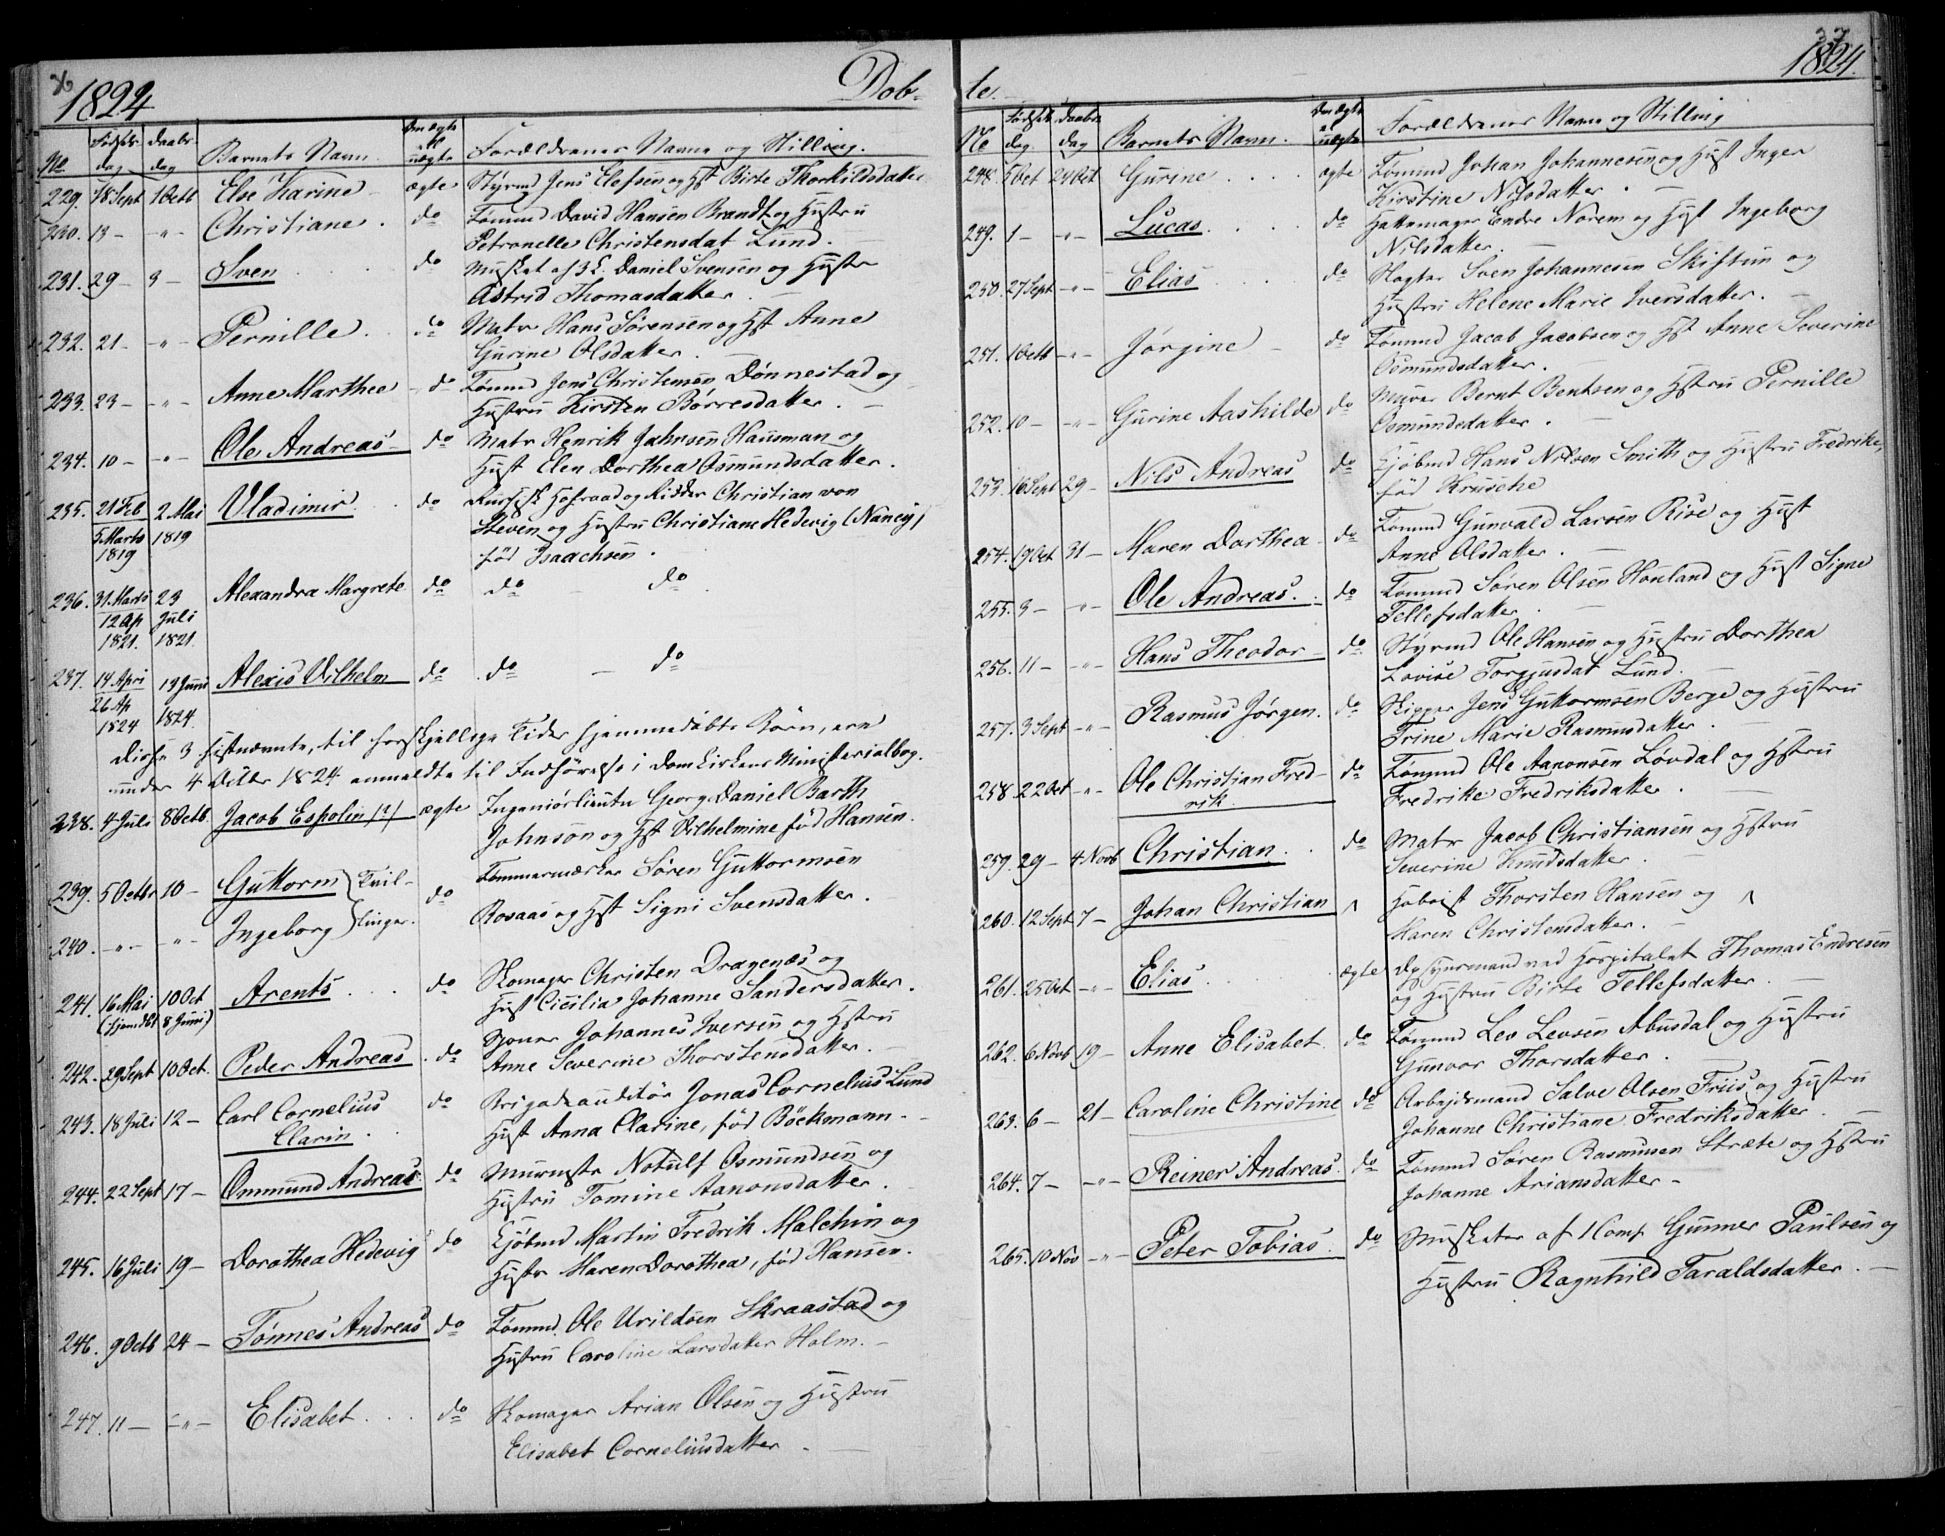 1824
Dob-
No
Fødsels
dag
Daabs
dag
Barnets Navn.
Om ægte
el
uægte
Forældrenes Navne og Stilling.
229. 18 Sept 1 Octb Else Karine ægte Styrmd Jens Elefsen og Hst Birte Thorkildsdatter
230. 13 — „ — Christiane . do Tømmd David Hansen Brandt og Hustru
Petronelle Christensdat Lund. —
231. 29 — 3 — Sven do Musket af 3 C. Daniel Svensen og Hustr
Astrid Thomasdatter. —
232. 21 — „ — Pernille . do Matr Hans Sørensen og Hst Anne
Gurine Olsdatter. —
233. 23 — — „ — Anne Marthee — do Tømmd Jens Christensen Dønnestad og
Hustru Kirsten Børresdatter. —
234. 10 — — „ — Ole Andreas — do Matr Henrik Jahnsen Hausman og
Hust Elen Dorthea Osmundsdatter.
235. 21 Feb 2 Mai Vladimir . . do Russisk Hofraad og Ridder Christian von
5 Marts 1819 Steven og Hustru Christiane Hedevig (Nancy)
1819 fød Isaachsen .
236. 31 Marts 23 Alexandra Margrete do do — do
12 Ap Juli
1821. 1821
237. 14 Apri 13 Juni Alexis Vilhelm do do — do
26 Ap
1824 1824
Disse 3 sidstnævnte, til forskjellige Tider hjemmedøbte Børn, ere
under 4 Octbr 1824 anmeldte til Indførelse i Domkirkens Ministerialbog.
238. 4 Juli 8 Octb. Jacob Espolin (?) ægte Ingeniørlieutn Georg Daniel Barth
Johnson og Hst Vilhelmine fød Hansen.
239. 5 Octbr 10 — Guttorm } Tvil- do Tømmermærker Søren Guttormsen
Rosaas og Hst Signi Svensdatter. —
240. — „ — „ — Ingeborg } linger.
241. 16 Mai 10 Oct Arents . . . do Skomager Christen Dragenæs og
(hjemdbt 8 Juni) Hust Cicilia Johanne Sandersdatter.
242. 29 Sept 10 Oct. Peder Andreas . do Johannes Iversen og Hstru
Anne Severine Thorstensdatter. —
243. 18 Juli 12 — Carl Cornelius do Brigadeauditør Jonas Cornelius Lund
Clarin . Hust Anna Clarine, fød Böckmann —
244. 22 Sept 17 — Ommund Andreas do Murmestr Notulf Osmundsen og
Hustru Tomine Aanonsdatter.
245. 16 Juli 19 — Dorothea Hedevig do Kjøbmd Martin Fredrik Malchin og
Hustr Maren Dorothea, fød Hansen.
246. 9 Octb 24 — Tønnes Andreas do Tømmd. Ole Urildsen Skraastad og
Hustru Caroline Larsdatter Holm. —
247. 11 — — „ — Elisabet . . . do Skomager Arian Olsen og Hustru
Elisabet Corneliusdatter . —
37
te.
1824.
No
Fødsels
dag
Daabs
dag
Barnets Navn.
Om ægte
el
uægte
Forældrenes Navne og Stilling
248. 5 Oct 24 Oct Gurine . . . . ægte Tømmd Johan Johannesen og Hust Inger
Kirstine Nilsdatter .
249. 1 — — „ — Lucas . . . . do Hattemager Endre Norem og Hust Ingeborg
Nilsdatter. —
250. 27 Sept — „ — Elias . . . do Slagter Sven Johannesen Skiftun og
Hustru Helene Marie Iversdatter. —
251. 1 Octb — „ — Jørgine — do Tømmd Jacob Jacobsen og Hst Anne Severine
Osmundsdatter. —
252. 10 — — „ — Gurine Aashilde do Murer Bernt Bentsen og Hstru Pernille
Osmundsdatter .
253. 16 Sept 29 — Nils Andreas do Kjøbmd Hans Nilsen Smith og Hustru Fredrike,
fød Krusche
254. 19 Oct 31 — Maren Dorthea — do Tømmd Gunvald Larsen Rise og Hust
Anne Olsdatter . —
255. 3 — — „ — Ole Andreas . . do Tømmd Søren Olsen Houland og Hust Signe
Tellefsdatter . —
256. 11 — — „ — Hans Theodor — do Styrmd Ole Hansen og Hustru Dorthea
Lovise Torgjusdat Lund. —
257. 3 Sept — „ — Rasmus Jørgen. do Skipper Jens Guttormsen Berge og Hustru
Trine Marie Rasmusdatter . —
258. 22 Oct — „ — Ole Christian Fred- do Tømmd Ole Aanonsen Løvdal og Hstru
rik Fredrike Fredriksdatter . —
259. 29 — 4 Novb Christian . . do Matr Jacob Christiansen og Hstru
Severine Knudsdatter . —
260. 12 Sept 7 — Johan Christian Hoboist Thorsten Hansen og
Karen Christensdatter. —
261. 25 Oct — „ — Elias . . ægte Opsynsmand ved Hospitalet Thomas Endresen
og Hustru Birte Tellefsdatter . —
262. 6 Novb 19 — Anne Elisabet . do Tømmd Leo Levsen Abusdal og Hustru
Gunvor Thorsdatter .
263. 6 — 21 — Caroline Christine do Arbejdsmand Salve Olsen Friis og Hustru
Johanne Christiane Fredriksdatter . —
264. 7 — — „ — Reiner Andreas . do Tømmd Søren Rasmusen Stræte og Hstru
Johanne Ariansdatter —
265. 10 Nov — „ — Peter Tobias . do Musketer af 1 Comp. Gunner Paulsen og
Hustru Ragnhild Taraldsdatter. —